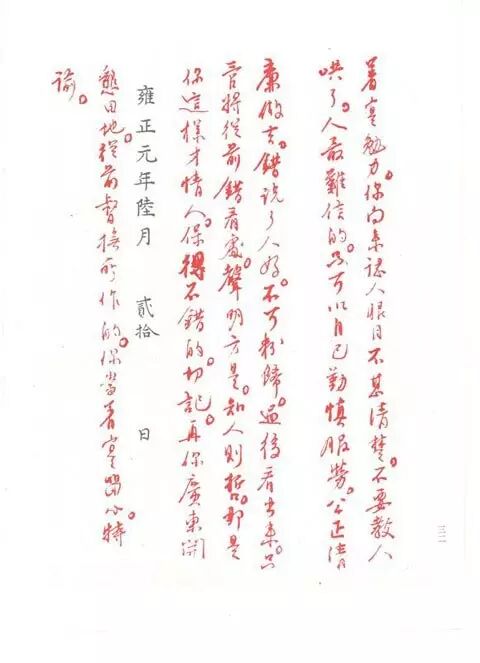 著實勉力。你向來認人眼目不甚清楚。不要教人
哄了。人最難信的。只可以自己勤慎服勞。公正清
廉做去。錯說了人好。不可粉飾。過後看出來。只
管將從前錯看處。聲明方是。知人則哲。即是
你這樣才情人。保得不錯的。切記。再你廣東開
雍正元年陸月 貳拾 日
墾田地。從前督撫所作的。你當著實留心。特
諭。
三二